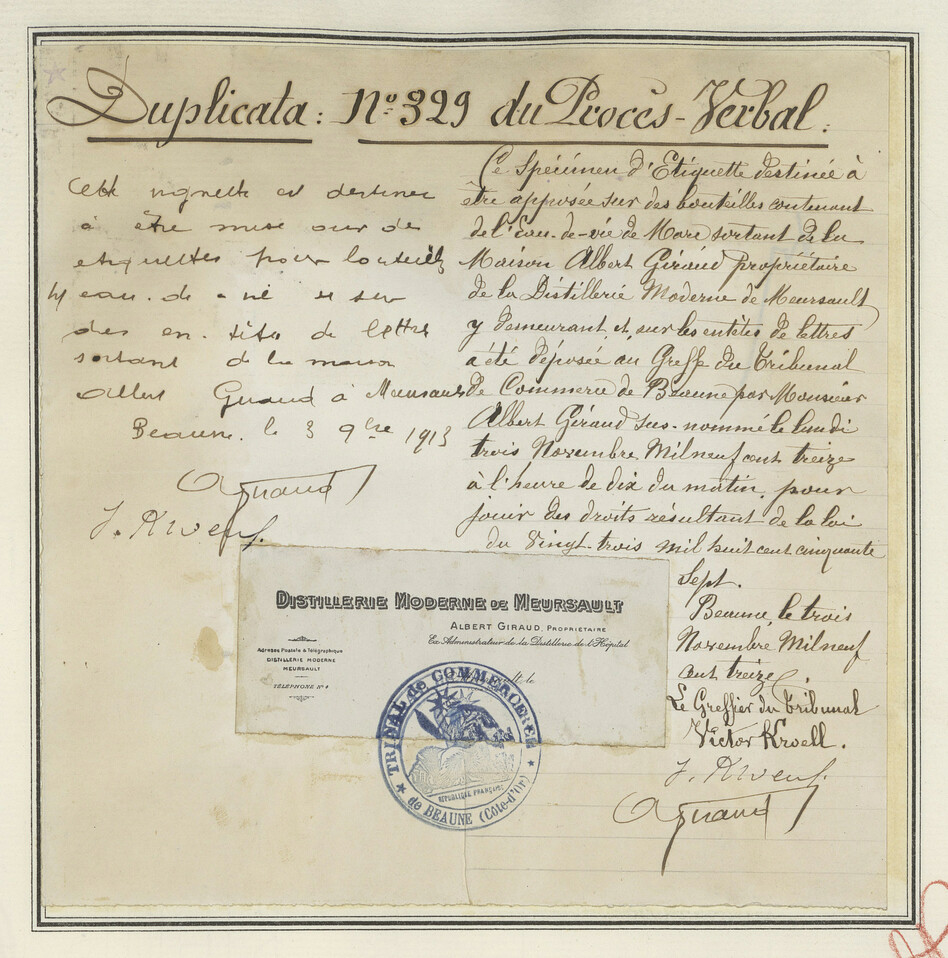 Duplicata : N° 329 du Procès-Verbal :
Cette vignette est destinée
à être mise sur des
etiquettes pour bouteilles
d'eau-de-vie et sur
des en-têtes de lettres
sortant de la maison
Albert Giraud à Meursault
Beaune, le 3 9bre 1913
AGiraud
Ce Spécimen d'Etiquette destinée à
être apposée sur des bouteilles contenant
de l'Eau-de-vie de Marc sortant de la
Maison Albert Giraud propriétaire
de la Distillerie Moderne de Meursault
y demeurant, et sur les entêtes de lettres
a été déposée au Greffe du Tribunal
de Commerce de Beaune par Monsieur
Albert Giraud sus-nommé le lundi
trois Novembre Mil neuf cent treize
à l'heure de dix du matin, pour
jouir des droits résultant de la loi
du vingt-trois mil huit cent cinquante
Sept.
Beaune, le trois
Novembre Mil neuf
cent treize.
Le Greffier du Tribunal
Victor Kroell.
AGiraud
DISTILLERIE MODERNE DE MEURSAULT
ALBERT GIRAUD, PROPRIÉTAIRE
Ex Administrateur de la Distillerie de l'Hôpital
Adresses Postale & Télégraphique
DISTILLERIE MODERNE
MEURSAULT
TÉLÉPHONE N° 4
le
TRIBNAL de COMMERCE
RÉPUBLIQUE FRANÇAISE
de BEAUNE (Côte-d'Or)